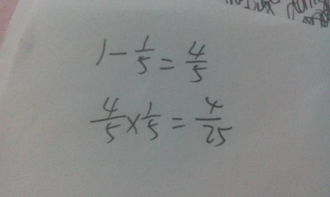 1 - 1/5 = 4/5
4/5 × 1/5 = 4/25